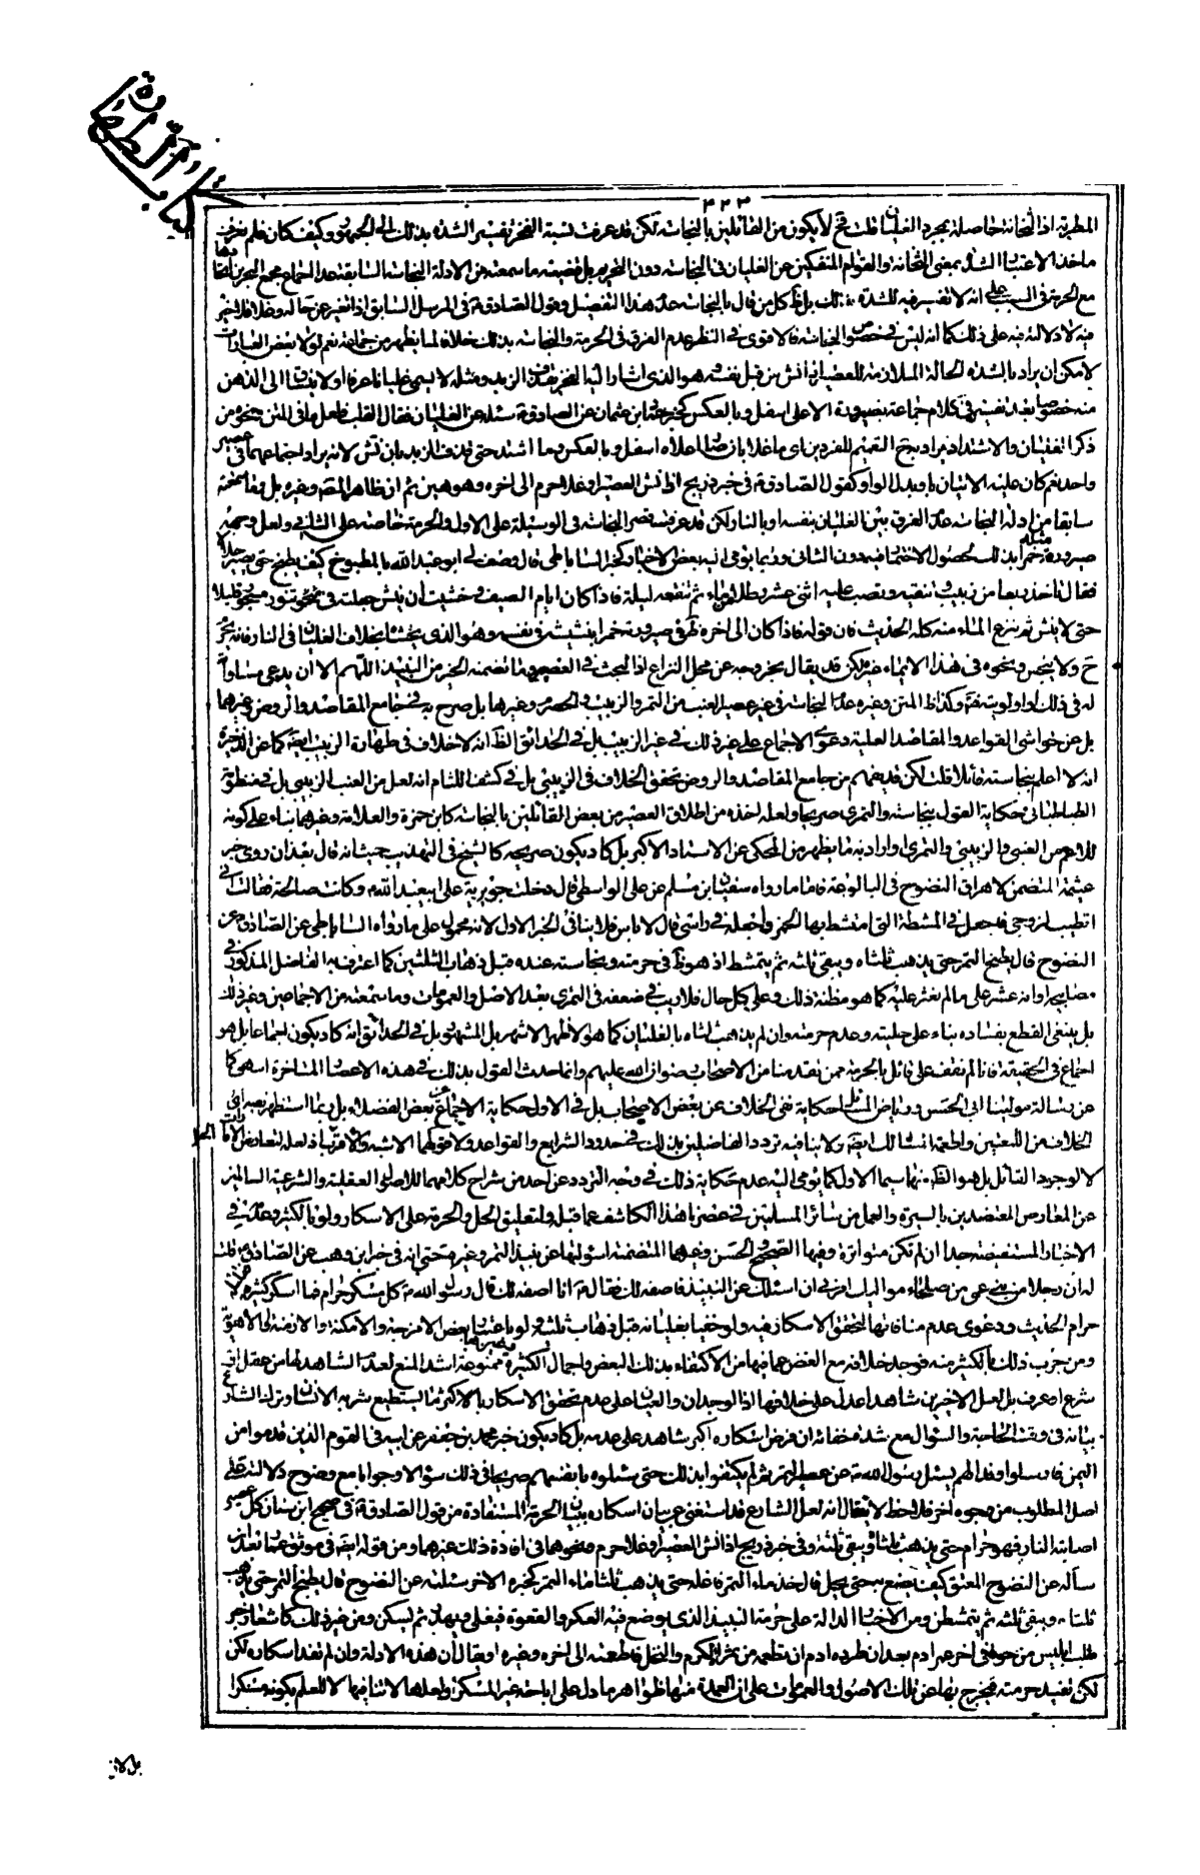 كتاب الطهارة
٢٢٣
المطربة اذ الثخانة حاصلة بمجرد الغليان قلت فح لا يكون من القائلين بالنجاسة لكن قد عرفت نسبة الفخر تفسير الشدة بذلك الى الجمهور وكيف كان فلم نعرف
ماخذ الاعتبار الشدة بمعنى الثخانة والقوام المنفكين عن الغليان في النجاسة دون التحريم بل قضية ما سمعته من الادلة النجاسة السابقة عدا
مع الحرمة في السبب على انه لا تفسير فيه للشدة بذلك بل ظ كل من قال بالنجاسة عدم هذا التفصيل وقول الصادق ع في المرسل السابق اذا تغير عن حاله وغلا فلا خير
فيه لا دلالة فيه على ذلك كما انه ليس في خصوص النجاسة فالاقوى في النظر عدم الفرق في الحرمة والنجاسة بذلك خلافا لما يظهر من جماعة نعم لولا بعض العبارات
لامكن ان يراد بالشدة الحالة الملازمة للعصير اذا نش من قبل نفسه هو الذي اشار اليه الفخر بقذف الزبد ومثله لا يسمى غليانا عرفا ولا ينساق الى الذهن
منه خصوصا بعد تفسيره في كلام جماعة بصيرورة الاعلى اسفل وبالعكس كخبر حماد بن عثمان عن الصادق ع سئله عن الغليان فقال القلب فلعل ما في المتن ونحوه من
ذكر الغليان والاشتداد مراد به التعميم للفردين اي ما غلا بان صار اعلاه اسفل وبالعكس وما اشتد حتى قذف الزبد بان نش لانه يراد اجتماعهما في عصير
واحد نعم كان عليه الاتيان باو بدل الواو كقول الصادق ع في خبر ذريح اذا نش العصير او غلا حرم الى اخره وهو هين ثم ان ظاهر المتن وغيره بل
سابقا من ادلة النجاسة عدم الفرق بين الغليان بنفسه او بالنار لكن قد عرفت قصر النجاسة في الوسيلة على الاول والحرمة خاصة على الثاني ولعل وجهه
صيرورته خمرا بذلك لحصول الاختمار فيه دون الثاني وربما يومى اليه بعض الاخبار كخبر الساباطي قال وصف لي ابو عبد الله ع المطبوخ كيف يطبخ حتى يصير حلالا
فقال تاخذ ربعا من زبيب وتنقيه وتصب عليه اثنى عشر رطلا من ماء ثم تنقعه ليلة فاذا كان ايام الصيف وخشيت ان ينش جعلته في تنور مسجور قليلا
حتى لا ينش ثم تنزع الماء منه كله الحديث فان قوله فاذا كان الى اخره ظ في صيرورته خمرا بنشيشه في نفسه وهو الذي يخشاه بخلاف الغليان في النار فانه يحرم
ح ولا ينجس ونحوه في هذا الايماء غيره لكن قد يقال بخروجه عن محل النزاع اذ البحث في العصير وما تضمنه الخبر من النبيذ اللهم الا ان يدعى مساواته
له في ذلك او اولويته منه وكذا ظ المتن وغيره عدم النجاسة في غير عصير العنب من التمر والزبيب والحصرم وغيرها بل صرح به في جامع المقاصد والروض وغيرهما
بل عن حواشي القواعد والمقاصد العلية دعوى الاجماع على غير ذلك في غير الزبيب بل في الحدائق الظ انه لا خلاف في طهارة الزبيب ايضا كما عن الذخيرة
انه لا اعلم بنجاسته قائلا قلت لكن قد يفهم من جامع المقاصد والروض تحقق الخلاف في الزبيبي بل في كشف اللثام انه لعل من العنب الزبيبي بل في منظومة
الطباطبائي حكاية القول بنجاسته والتمري صريحا ولعله اخذه من اطلاق العصير من بعض القائلين بالنجاسة كابن حمزة والعلامة وغيرهما بناء على كونه
للاعم من العنبي والزبيبي والتمري او اراد به ما يظهر من المحكي عن الاستاد الاكبر بل كاد يكون صريحه كالشيخ في التهذيب حيث انه قال بعد ان روى خبر
عيثمة المتضمن لاهراق النضوح في البالوعة فاما ما رواه سفيان بن مسلم عن علي الواسطي قال دخلت جويرية على ابي عبد الله ع وكانت صالحة فقالت اني
اتطيب لزوجي فاجعل في المشطة التي امتشط بها الخمر واجعله في راسي قال لا باس فلا ينافي الخبر الاول لانه محمول على ما رواه الساباطي عن الصادق ع عن
النضوح قال يطبخ التمر حتى يذهب ثلثاه ويبقى ثلثه ثم يتمشط اذ هو ظ في حرمته ونجاسته عنده قبل ذهاب الثلثين كما اعترف به الفاضل المذكور في
مصابيحه او انه عثر على ما لم نعثر عليه كما هو مظنة ذلك وعلى كل حال فلا ريب في ضعفه في التمري بعد الاصل والعمومات وما سمعته من الاجماعين وغير ذلك
بل ينبغي القطع بفساده بناء على حليته وعدم حرمته وان لم يذهب ثلثاه بالغليان كما هو الاظهر الاشهر بل المشهور بل في الحدائق انه كاد يكون اجماعا بل هو
اجماع في الحقيقة فانا لم نقف على قائل بالحرمة ممن تقدمنا من الاصحاب رضوان الله عليهم وانما حدث القول بذلك في هذه الاعصار المتاخرة انتهى كما
عن رسالة مولينا ابي الحسن ورياض المسائل حكاية نفي الخلاف عن بعض الاصحاب بل في الاول حكاية الاجماع عن بعض الفضلاء بل ربما استظهر بعضهم نفي
الخلاف من اللمعتين واطعمة المسالك ايضا ولا ينافيه تردد الفاضلين بذلك في حدود الشرايع والقواعد
لا لوجود القائل بل هو الظ منهما سيما الاول كما يومي اليه عدم حكاية ذلك في وجه التردد عن احد من شراح كلامهما للاصول العقلية والشرعية السالمين
عن المعارض المعتضدين بالسيرة والعمل من سائر المسلمين في عصرنا هذا الكاشف عما قبله ولتعليق الحل والحرمة على الاسكار ولو بالكثير وعدمه في
الاخبار المستفيضة جدا ان لم تكن متواترة وفيها الصحيح والحسن وغيرهما المتضمنة اسئولتها عن نبيذ التمر وغيره حتى انه في خبر ابن وهب عن الصادق ع قلت
له ان رجلا من بني عمي من صلحاء مواليك امرني ان اسئلك عن النبيذ فاصفه لك فقال ع انا اصفه لك قال رسول الله ص كل مسكر حرام فما اسكر كثيره فقليله
حرام الحديث ودعوى عدم منافاتها لتحقق الاسكار فيه ولو خفيا بغليانه قبل ذهاب ثلثيه ولو باعتبار بعض الامزجة والامكنة والازمنة
ومن جرب ذلك بالكثير منه فوجد خلافه مع الغض عما فيها من الاكتفاء بذلك البعض واجمال الكثيرة ممنوعة اشد المنع لعدم الشاهد لها من عقل او
شرع او عرف بل لعل الاخيرين شاهدا عدل على خلافها اذ الوجدان والعيان على عدم تحقق الاسكار بالاكثر مما يستطيع شربه الانسان وترك الشارع
بيانه في وقت الحاجة والسؤال مع شدة خفائه ان فرض اسكاره اكبر شاهد على عدمه بل كاد يكون خبر محمد بن جعفر عن ابيه في القوم الذين قدموا من
اليمن فارسلوا وفدا لهم يسئل رسول الله ص عن عصير التمر ثم لم يكتفوا بذلك حتى سئلوه بانفسهم صريحا في ذلك سؤالا وجوابا مع وضوح دلالته على
اصل المطلوب من وجوه اخر فلاحظ لا يقال انه لعل الشارع قد استغنى عن بيان اسكاره ببيان الحرمة المستفادة من قول الصادق ع في صحيح ابن سنان كل عصير
اصابته النار فهو حرام حتى يذهب ثلثاه ويبقى ثلثه وفي خبر ذريح اذا نش العصير او غلا حرم ونحوهما في افادة ذلك غيرهما ومن قوله ايضا في موثق عمار بعد ان
سأله عن النضوح المعتق كيف يصنع به حتى يحل قال خذ ماء التمر فاغله حتى يذهب ثلثا ماء التمر كخبره الاخر سئلته عن النضوح قال يطبخ التمر حتى يذهب
ثلثاه ويبقى ثلثه ثم يتمشطن ومن الاخبار الدالة على حرمة النبيذ الذي يوضع فيه العكر والقعوة فيغلي وينهار ثم يسكن ومن غير ذلك كاشعار خبر
طلب ابليس من حواء في اخر عمر ادم بعد ان طرده ادم ان تطعمه من ثمر الكرم والنخل فاطعمته الى اخره وغيره او يقال ان هذه الادلة وان لم تفد اسكاره لكن
لكن تفيد حرمته فيخرج بها عن تلك الاصول والعمومات على ان العمدة منها ظواهر ما دل على اباحة غير المسكر ولعلها لا تنافيها للعلم بكونه مسكرا
بل لا